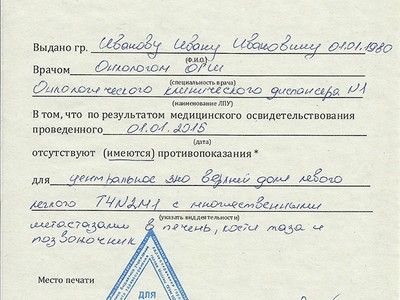 Выдано гр. Иванову Ивану Ивановичу 01.01.1980
(Ф.И.О.)
Врачом Онкологом ОРШ
(специальность врача)
Онкологического клинического диспансера №1
(наименование ЛПУ)
В том, что по результатом медицинского освидетельствования
проведенного 01.01.2016
(дата)
отсутствуют (имеются) противопоказания *
для центральное зно верхней доли левого
легкого T4N2M1 с множественными
(указать вид деятельности)
метастазами в печень, кости таза и
позвоночник
Место печати
ДЛЯ